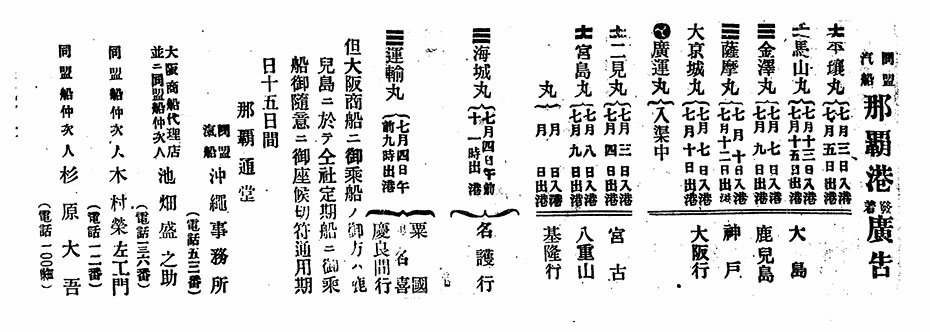 同盟汽船 那覇港發着廣告
平壤丸 七月三日入港 七月五日出港
馬山丸 七月十三日入港 七月十五日出港 大島
金澤丸 七月七日入港 七月九日出港 鹿兒島
薩摩丸 七月十日入港 七月十二日出港 神戸
大京城丸 七月七日入港 七月十日出港 大阪行
廣運丸 入渠中
二見丸 七月三日入港 七月四日出港 宮古
宮島丸 七月八日入港 七月九日出港 八重山
丸 月日入港 月日出港 基隆行
海城丸 七月四日午前十一時出港 名護行
運輸丸 七月四日午前九時出港 粟國 名喜 慶良間行
但大阪商船ニ御乘船ノ御方ハ鹿
兒島ニ於テ仝社定期船ニ御乘
船御隨意ニ御座候切符通用期
日十五日間
那覇通堂
同盟汽船 沖繩事務所
(電話五三番)
大阪商船代理店並ニ同盟船仲次人 池畑盛之助
(電話三六番)
同盟船仲次人 木村榮左工門
(電話一二番)
同盟船仲次人 杉原大吾
(電話一〇〇番)